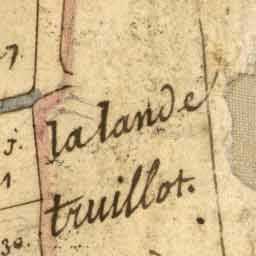 7
la lande
j.
1
truillot.
30.